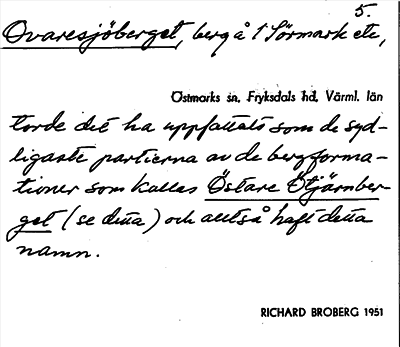 5.
Ovaresjöberget, berg å 1 Sörmark etc,
Östmarks sn, Fryksdals hd, Värml. län
torde det ha uppfattats som de syd-
ligaste partierna av de bergforma-
tioner som kallas Östare Ötjärnber-
get (se detta) och alltså haft detta
namn.
RICHARD BROBERG 1951